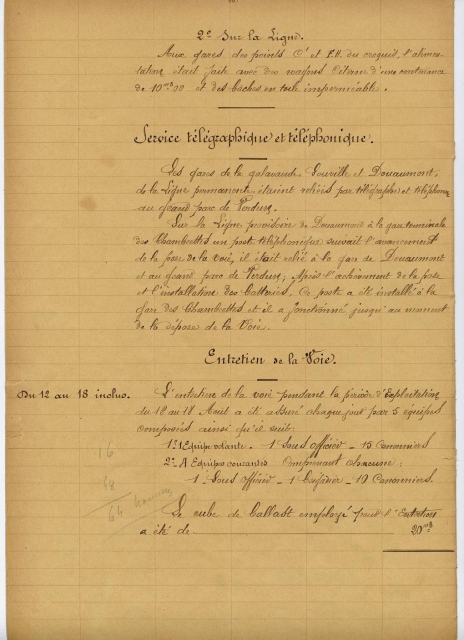 2° Sur la Ligne.
Aux gares des points O' et P.H. du croquis, l'alimen-
tation était faite avec des wagons Citerne d'une contenance
de 10m3,00 et des baches en toile imperméable.
Service télégraphique et téléphonique.
Les gares de la galavaude, Fouville et Douaumont,
de la Ligne permanente, étaient reliées par télégraphe et téléphone
au grand parc de Verdun.
Sur la Ligne provisoire de Douaumont à la gare terminale
des Chambrettes un poste téléphonique suivait l'avancement
de la pose de la voie, il était relié à la gare de Douaumont
et au grand parc de Verdun; Après l'achèvement de la pose
et l'installation des Batteries, ce poste a été installé à la
gare des Chambrettes et il a fonctionné jusqu'au moment
de la dépose de la Voie.
Entretien de la Voie.
Du 12 au 18 inclus.
L'entretien de la voie pendant la période d'Exploitation
du 12 au 18 Août a été assuré chaque jour par 5 équipes
composées ainsi qu'il suit:
1° 1 Equipe volante - 1 Sous Officier - 15 Canonniers
2° 4 Equipes courantes comprenant chacune:
1 Sous Officier - 1 - 19 Canonniers.
16
64
Le cube de Ballast employé pour l'Entretien
a été de 20m3